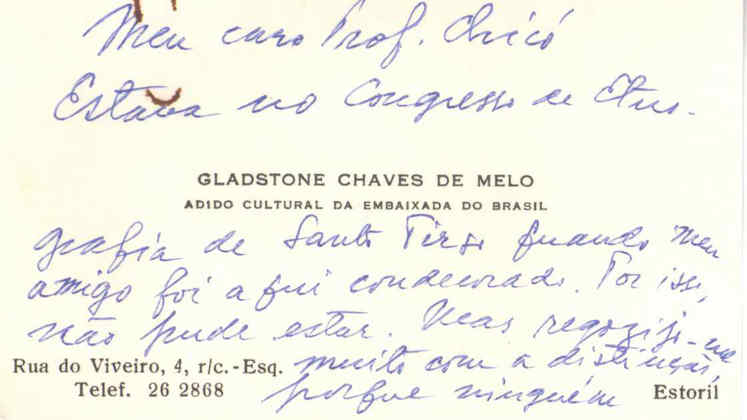 Meu caro Prof. Chicó
Estava no Congresso de Etno-
GLADSTONE CHAVES DE MELO
ADIDO CULTURAL DA EMBAIXADA DO BRASIL
grafia de Santo Tirso quando meu
amigo foi aqui condecorado. Por isso,
não pude estar. Mas regozijo-me
muito com a distinção,
porque ninguém
Rua do Viveiro, 4, r/c.-Esq.
Telef. 26 2868
Estoril